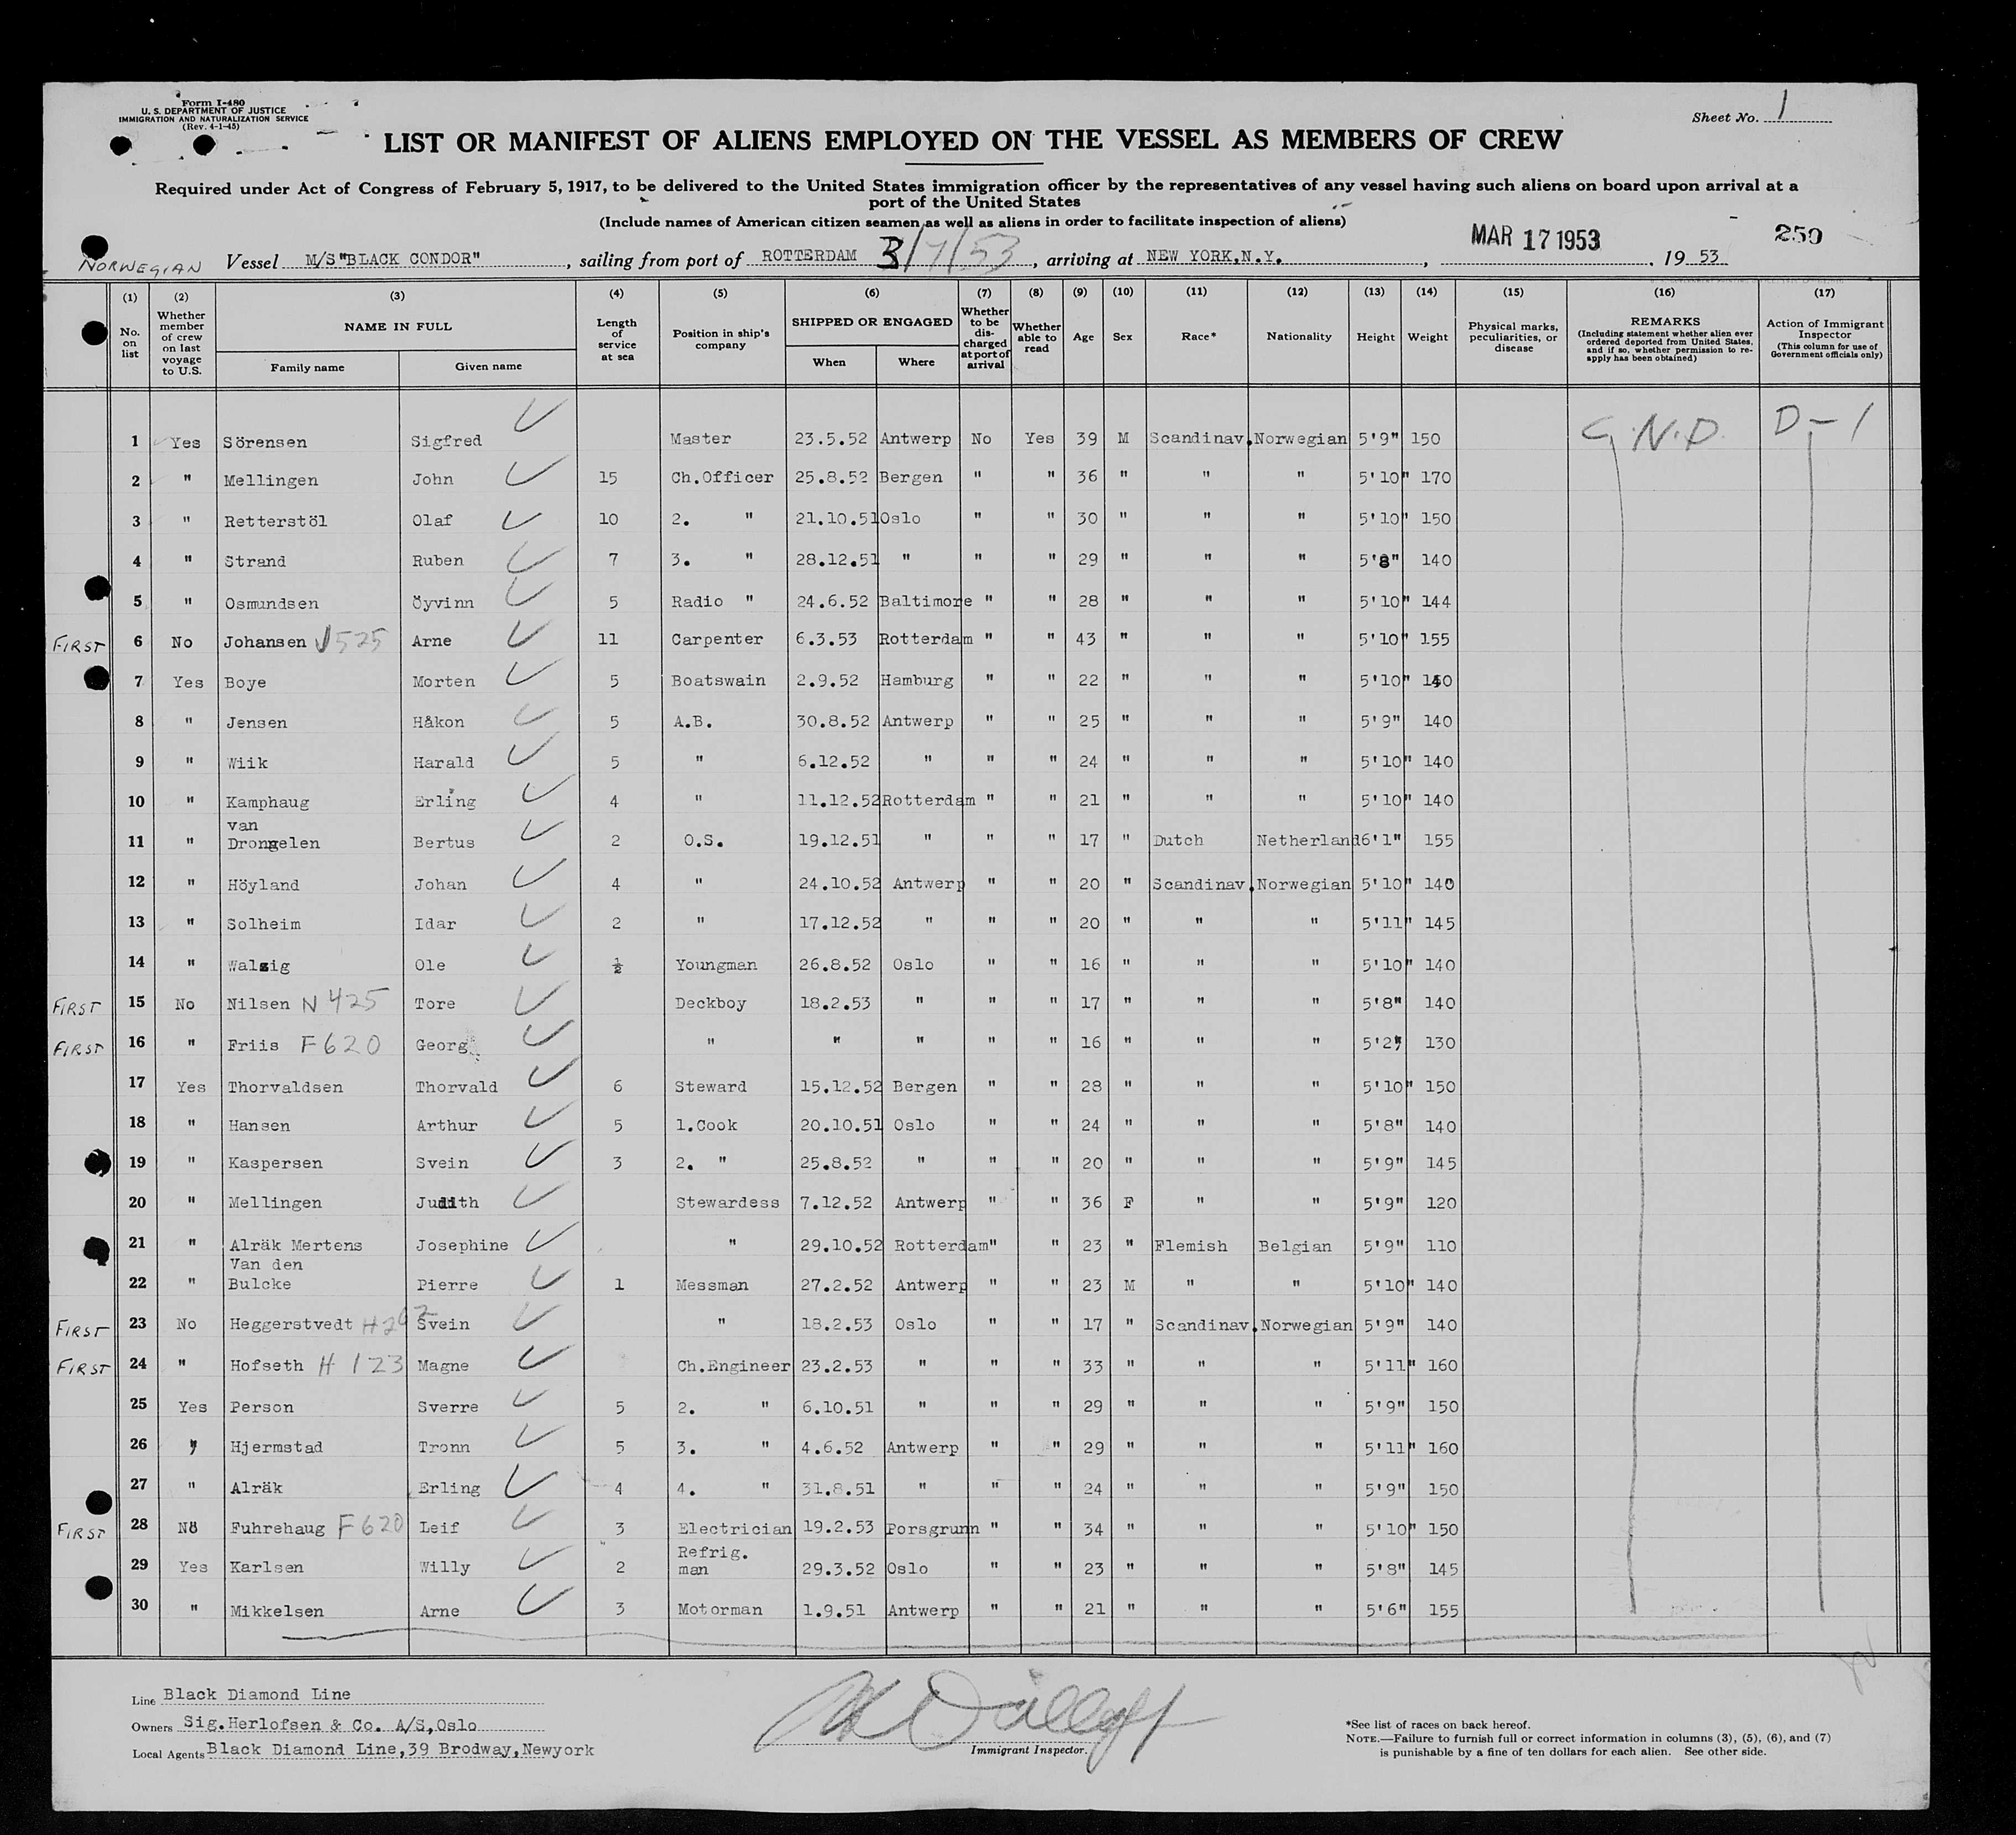 Form I-480
U. S. DEPARTMENT OF JUSTICE
IMMIGRATION AND NATURALIZATION SERVICE
(Rev. 4-1-45)
Sheet No. 1
LIST OR MANIFEST OF ALIENS EMPLOYED ON THE VESSEL AS MEMBERS OF CREW
Required under Act of Congress of February 5, 1917, to be delivered to the United States immigration officer by the representatives of any vessel having such aliens on board upon arrival at a
port of the United States
(Include names of American citizen seamen as well as aliens in order to facilitate inspection of aliens)
MAR 17 1953 250
NORWEGIAN Vessel M/S"BLACK CONDOR", sailing from port of ROTTERDAM 3/7/53, arriving at NEW YORK.N.Y., 19 53
(1) No. on list (2) Whether member of crew on last voyage to U.S. (3) NAME IN FULL Family name Given name (4) Length of service at sea (5) Position in ship's company (6) SHIPPED OR ENGAGED When Where (7) Whether to be discharged at port of arrival (8) Whether able to read (9) Age (10) Sex (11) Race* (12) Nationality (13) Height (14) Weight (15) Physical marks, peculiarities, or disease (16) REMARKS (Including statement whether alien ever ordered deported from United States, and if so, whether permission to reapply has been obtained) (17) Action of Immigrant Inspector (This column for use of Government officials only)
1 Yes Sörensen Sigfred Master 23.5.52 Antwerp No Yes 39 M Scandinav. Norwegian 5'9" 150 G.N.D. D-1
2 " Mellingen John 15 Ch.Officer 25.8.52 Bergen " " 36 " " " 5'10" 170
3 " Retterstöl Olaf 10 2. " 21.10.51 Oslo " " 30 " " " 5'10" 150
4 " Strand Ruben 7 3. " 28.12.51 " " " 29 " " " 5'8" 140
5 " Osmundsen Öyvinn 5 Radio " 24.6.52 Baltimore " " 28 " " " 5'10" 144
FIRST 6 No Johansen J525 Arne 11 Carpenter 6.3.53 Rotterdam " " 43 " " " 5'10" 155
7 Yes Boye Morten 5 Boatswain 2.9.52 Hamburg " " 22 " " " 5'10"
8 " Jensen Håkon 5 A.B. 30.8.52 Antwerp " " 25 " " " 5'9" 140
9 " Wiik Harald 5 " 6.12.52 " " " 24 " " " 5'10" 140
10 " Kamphaug Erling 4 " 11.12.52 Rotterdam " " 21 " " " 5'10" 140
11 " van Drongelen Bertus 2 O.S. 19.12.51 " " " 17 " Dutch Netherland 6'1" 155
12 " Höyland Johan 4 " 24.10.52 Antwerp " " 20 " Scandinav. Norwegian 5'10" 140
13 " Solheim Idar 2 " 17.12.52 " " " 20 " " " 5'11" 145
14 " Walzig Ole ½ Youngman 26.8.52 Oslo " " 16 " " " 5'10" 140
FIRST 15 No Nilsen N 425 Tore Deckboy 18.2.53 " " " 17 " " " 5'8" 140
FIRST 16 " Friis F620 Georg " " " " " 16 " " " 5'2" 130
17 Yes Thorvaldsen Thorvald 6 Steward 15.12.52 Bergen " " 28 " " " 5'10" 150
18 " Hansen Arthur 5 1.Cook 20.10.51 Oslo " " 24 " " " 5'8" 140
19 " Kaspersen Svein 3 2. " 25.8.52 " " " 20 " " " 5'9" 145
20 " Mellingen Judith Stewardess 7.12.52 Antwerp " " 36 F " " 5'9" 120
21 " Alräk Mertens Josephine " 29.10.52 Rotterdam " " 23 " Flemish Belgian 5'9" 110
22 " Van den Bulcke Pierre 1 Messman 27.2.52 Antwerp " " 23 M " " 5'10" 140
FIRST 23 No Heggerstvedt H262 Svein " 18.2.53 Oslo " " 17 " Scandinav. Norwegian 5'9" 140
FIRST 24 " Hofseth H 123 Magne Ch.Engineer 23.2.53 " " " 33 " " " 5'11" 160
25 Yes Person Sverre 5 2. " 6.10.51 " " " 29 " " " 5'9" 150
26 " Hjermstad Tronn 5 3. " 4.6.52 Antwerp " " 29 " " " 5'11" 160
27 " Alräk Erling 4 4. " 31.8.51 " " " 24 " " " 5'9" 150
FIRST 28 No Fuhrehaug F620 Leif 3 Electrician 19.2.53 Porsgrunn " " 34 " " " 5'10" 150
29 Yes Karlsen Willy 2 Refrig. man 29.3.52 Oslo " " 23 " " " 5'8" 145
30 " Mikkelsen Arne 3 Motorman 1.9.51 Antwerp " " 21 " " " 5'6" 155
Line Black Diamond Line
Owners Sig.Herlofsen & Co. A/S,Oslo
Local Agents Black Diamond Line,39 Brodway,Newyork
Immigrant Inspector.
*See list of races on back hereof.
NOTE.—Failure to furnish full or correct information in columns (3), (5), (6), and (7)
is punishable by a fine of ten dollars for each alien. See other side.